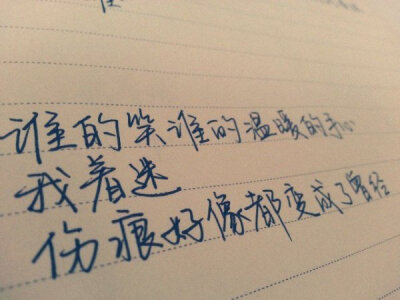 谁的笑谁的温暖的手心
我着迷
伤痕好像都变成了曾经